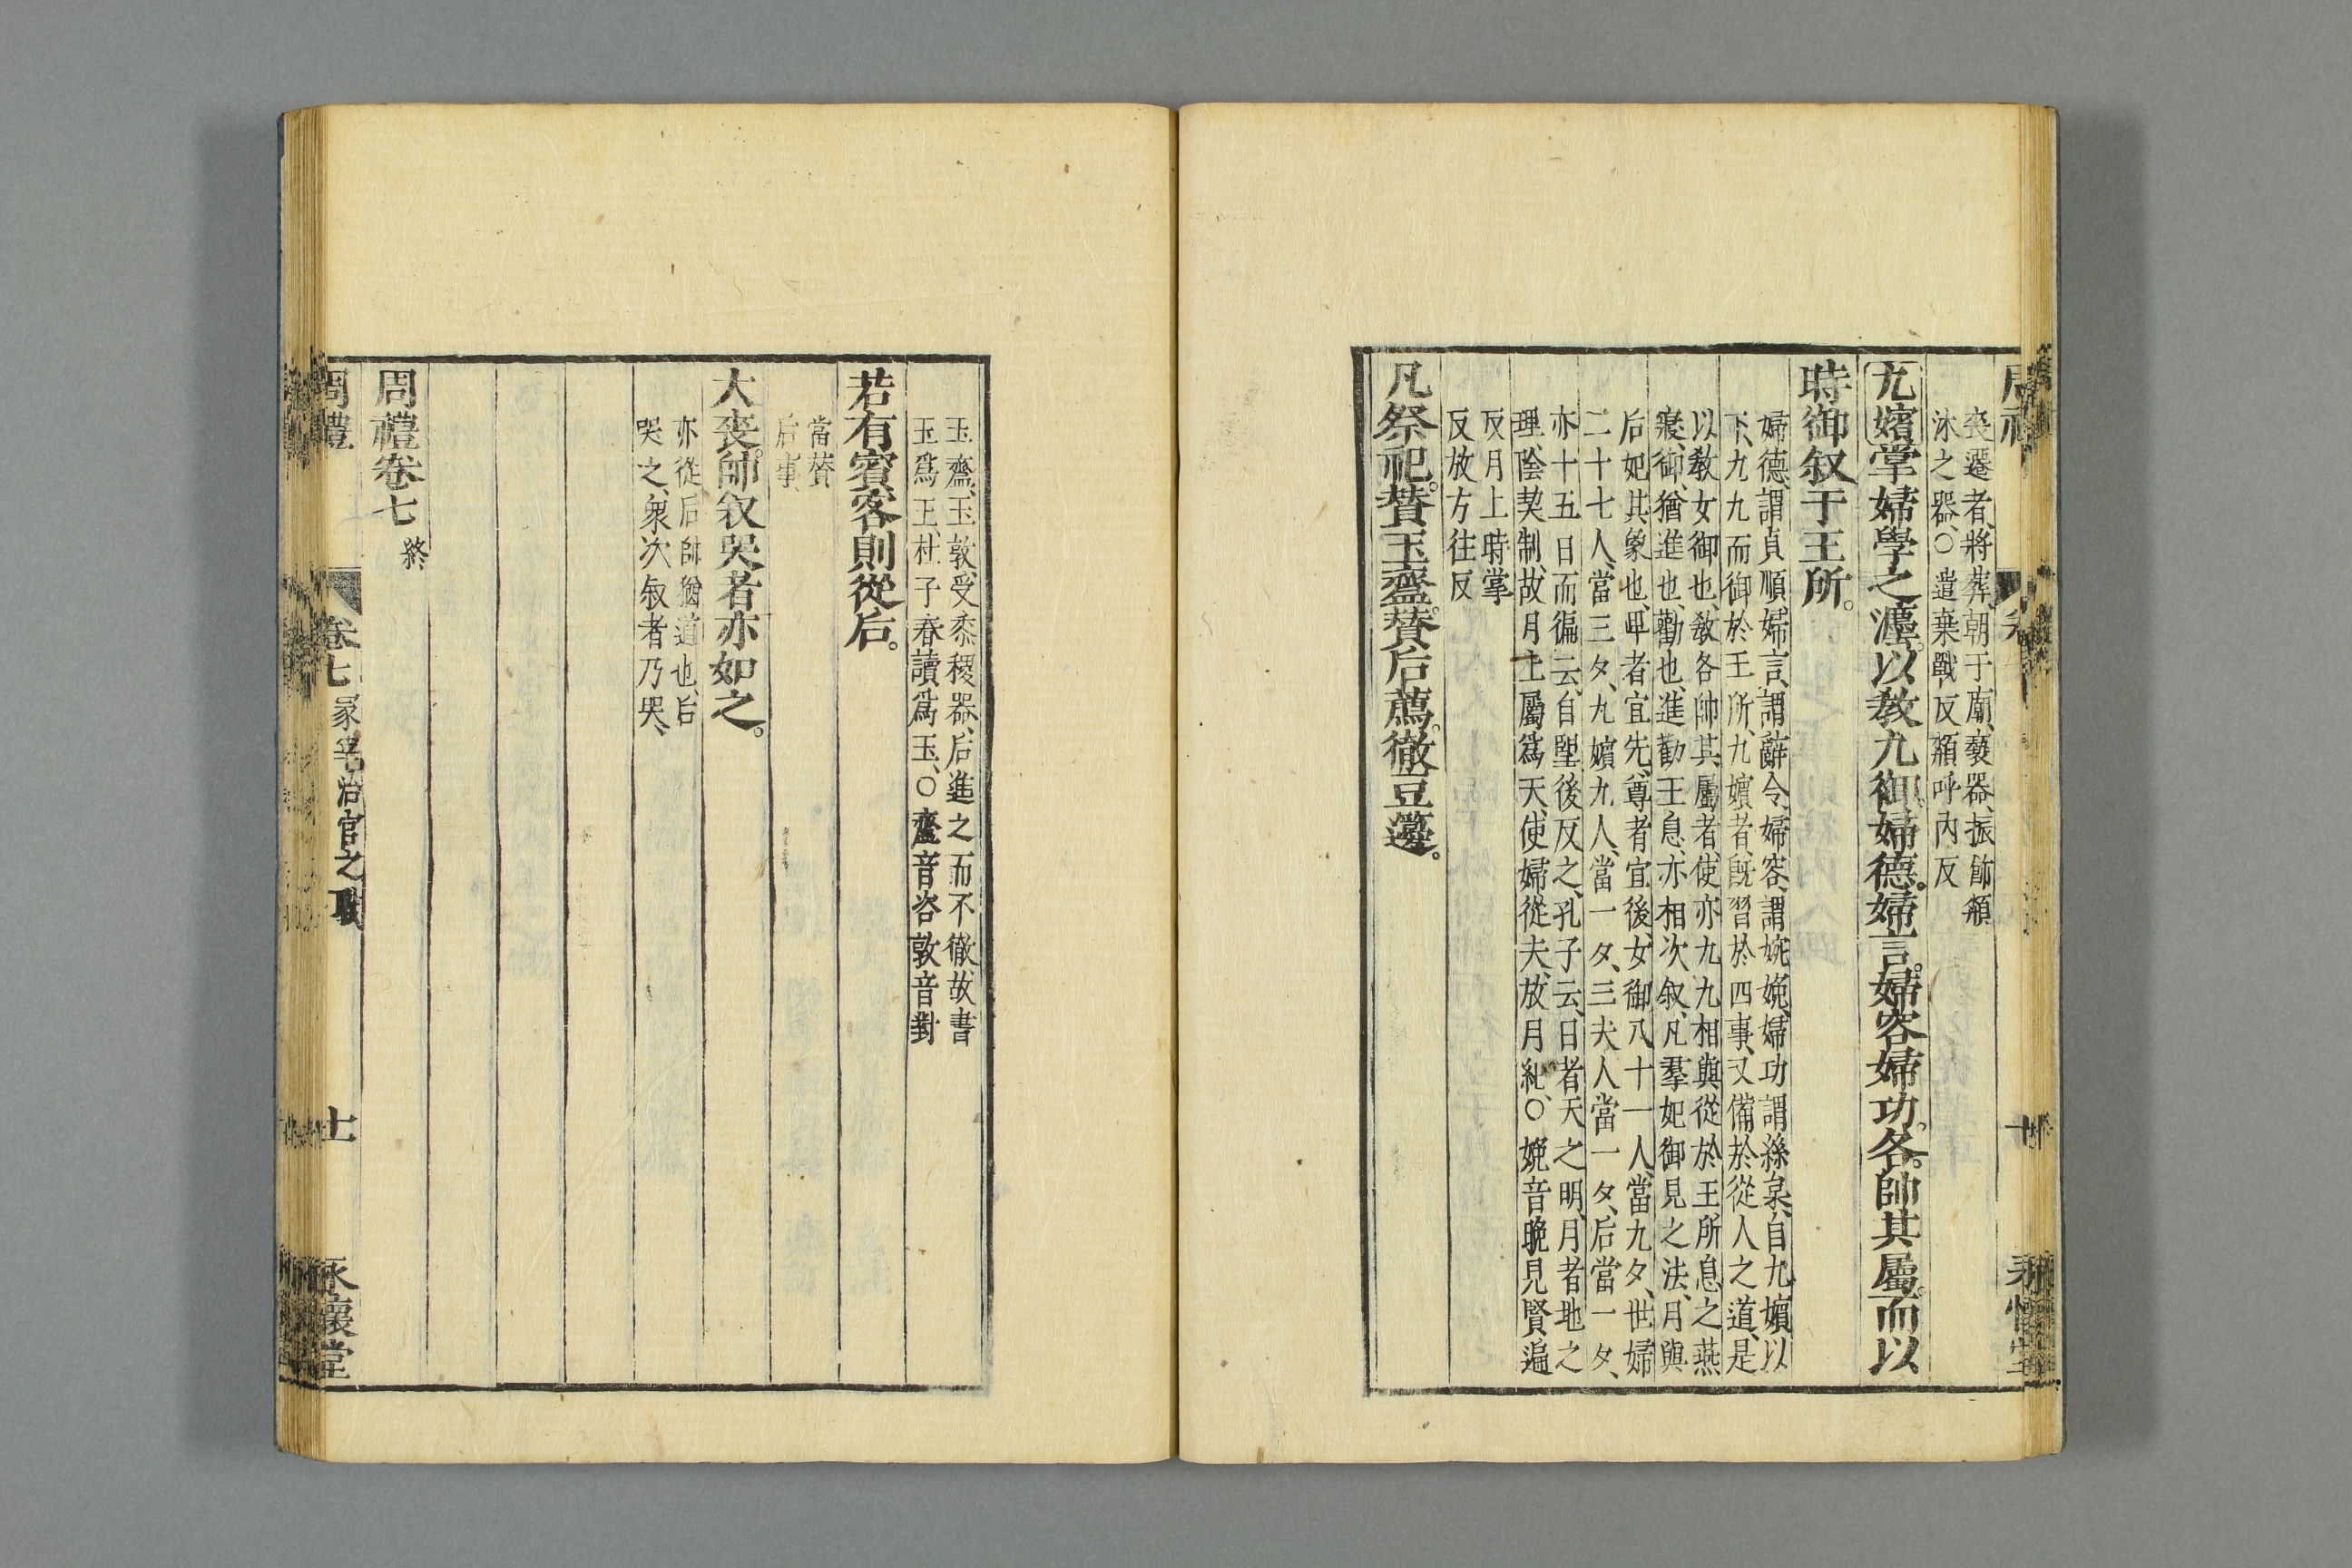 喪遷者、將葬、朝于廟、褻器、振飾、頮
沐之器、○遣棄戰反頮呼內反
九嬪掌婦學之灋。以教九御。婦德。婦言。婦容。婦功。各。帥其屬。而以
時御叙于王所。
婦德、謂貞順、婦言、謂辭令、婦容、謂婉娩、婦功謂絲枲、自九嬪以
下、九九而御於王所、九嬪者、旣習於四事、又備於從人之道、是
以教女御也、教各帥其屬者、使亦九九相與從於王所息之燕
寢、御、猶進也、勸也、進勸王息、亦相次叙、凡羣妃御見之法、月與
后妃其象也、卑者宜先、尊者宜後、女御八十一人、當九夕、世婦
二十七人、當三夕、九嬪九人、當一夕、三夫人當一夕、后當一夕、
亦十五日而徧云、自望後反之、孔子云、日者天之明、月者地之
理、陰契制、故月上屬爲天、使婦從夫、放月紀、○娩音晚見賢遍
反月上時掌
反放方往反
凡祭祀。贊玉齍。贊后薦。徹豆籩。
玉齍、玉敦、受黍稷器、后進之而不徹、故書
玉爲王、杜子春讀爲玉、○齍音咨敦音對
若有賓客則從后。
當贊
后事
大喪。帥叙哭者亦如之。
亦從后帥猶道也、后
哭之、衆次叙者乃哭、
周禮卷七 終
周禮 卷七 冢宰治官之職 十一 永懷堂